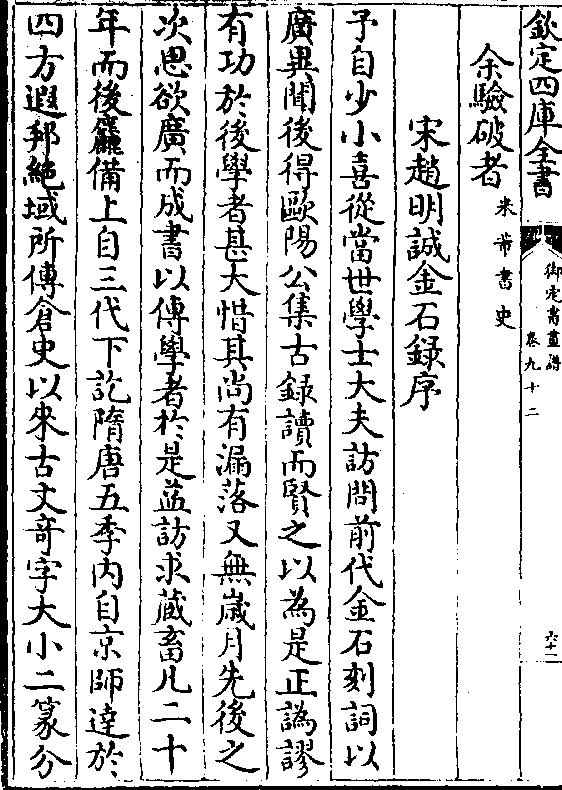 欽定四庫全書
御定書畫譜
卷九十二
六十一
余驗破者米芾書史
宋趙明誠金石録序
予自少小喜從當世學士大夫訪問前代金石刻詞以
廣異聞後得歐陽公集古録讀而賢之以為是正譌謬
有功於後學者甚大惜其尚有漏落又無嵗月先後之
次思欲廣而成書以傳學者於是益訪求藏畜凡二十
年而後麤備上自三代下訖隋唐五季内自京師達於
四方遐邦絶域所傳倉史以來古文竒字大小二篆分